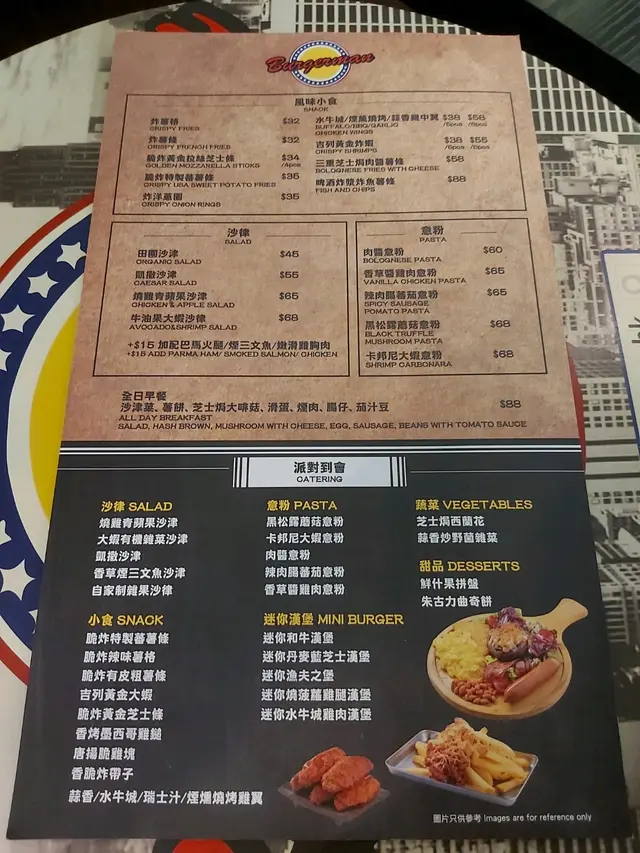 Burgerman
風味小食
SNACK
炸薯格 $32
CRISPY FRIES
炸薯條 $32
CRISPY FRENGH FRIES
脆炸黃金拉絲芝士條 $34
GOLDEN MOZZARELLA STICKS /4pcs
脆炸特製蕃薯條 $35
CRISPY USA SWEET POTATO FRIES
炸洋蔥圈 $35
CRISPY ONION RINGS
水牛城/煙風燒烤/蒜香雞中翼 $38 $58
BUFFALO/BBQ/GARLIC
CHICKEN WINGS
吉列黃金炸蝦 $38 $55
CRISPY SHRIMPS
三重芝士焗肉醬薯條 $58
BOLOGNESE FRIES WITH CHEESE
啤酒炸漿炸魚薯條 $88
FISH AND CHIPS
沙律
SALAD
田園沙津 $45
ORGANIC SALAD
凱撒沙津 $55
CAESAR SALAD
燒雞青蘋果沙津 $65
CHICKEN & APPLE SALAD
牛油果大蝦沙律 $68
AVOCADO&SHRIMP SALAD
+$15 加配巴馬火腿/煙三文魚/嫩滑雞胸肉
+$15 ADD PARMA HAM/ SMOKED SALMON/ CHICKEN
意粉
PASTA
肉醬意粉 $60
BOLOGNESE PASTA
香草醬雞肉意粉 $65
VANILLA CHICKEN PASTA
辣肉腸蕃茄意粉 $65
SPICY SAUSAGE
POMATO PASTA
黑松露蘑菇意粉 $68
BLACK TRUFFLE
MUSHROOM PASTA
卡邦尼大蝦意粉 $68
SHRIMP CARBONARA
全日早餐
沙津菜、薯餅、芝士焗大啡菇、滑蛋、煙肉、腸仔、茄汁豆 $88
ALL DAY BREAKFAST
SALAD, HASH BROWN, MUSHROOM WITH CHEESE, EGG, SAUSAGE, BEANS WITH TOMATO SAUCE
派對到會
CATERING
沙律 SALAD
燒雞青蘋果沙津
大蝦有機雜菜沙津
凱撒沙津
香草煙三文魚沙津
自家制雜果沙律
意粉 PASTA
黑松露蘑菇意粉
卡邦尼大蝦意粉
肉醬意粉
辣肉腸蕃茄意粉
香草醬雞肉意粉
蔬菜 VEGETABLES
芝士焗西蘭花
蒜香炒野菌雜菜
甜品 DESSERTS
鮮什果拼盤
朱古力曲奇餅
小食 SNACK
脆炸特製蕃薯條
脆炸辣味薯格
脆炸有皮粗薯條
吉列黃金大蝦
脆炸黃金芝士條
香烤墨西哥雞鎚
唐揚脆雞塊
香脆炸帶子
蒜香/水牛城/瑞士汁/煙燻燒烤雞翼
迷你漢堡 MINI BURGER
迷你和牛漢堡
迷你丹麥藍芝士漢堡
迷你漁夫之堡
迷你燒菠蘿雞腿漢堡
迷你水牛城雞肉漢堡
圖片只供參考 Images are for reference only